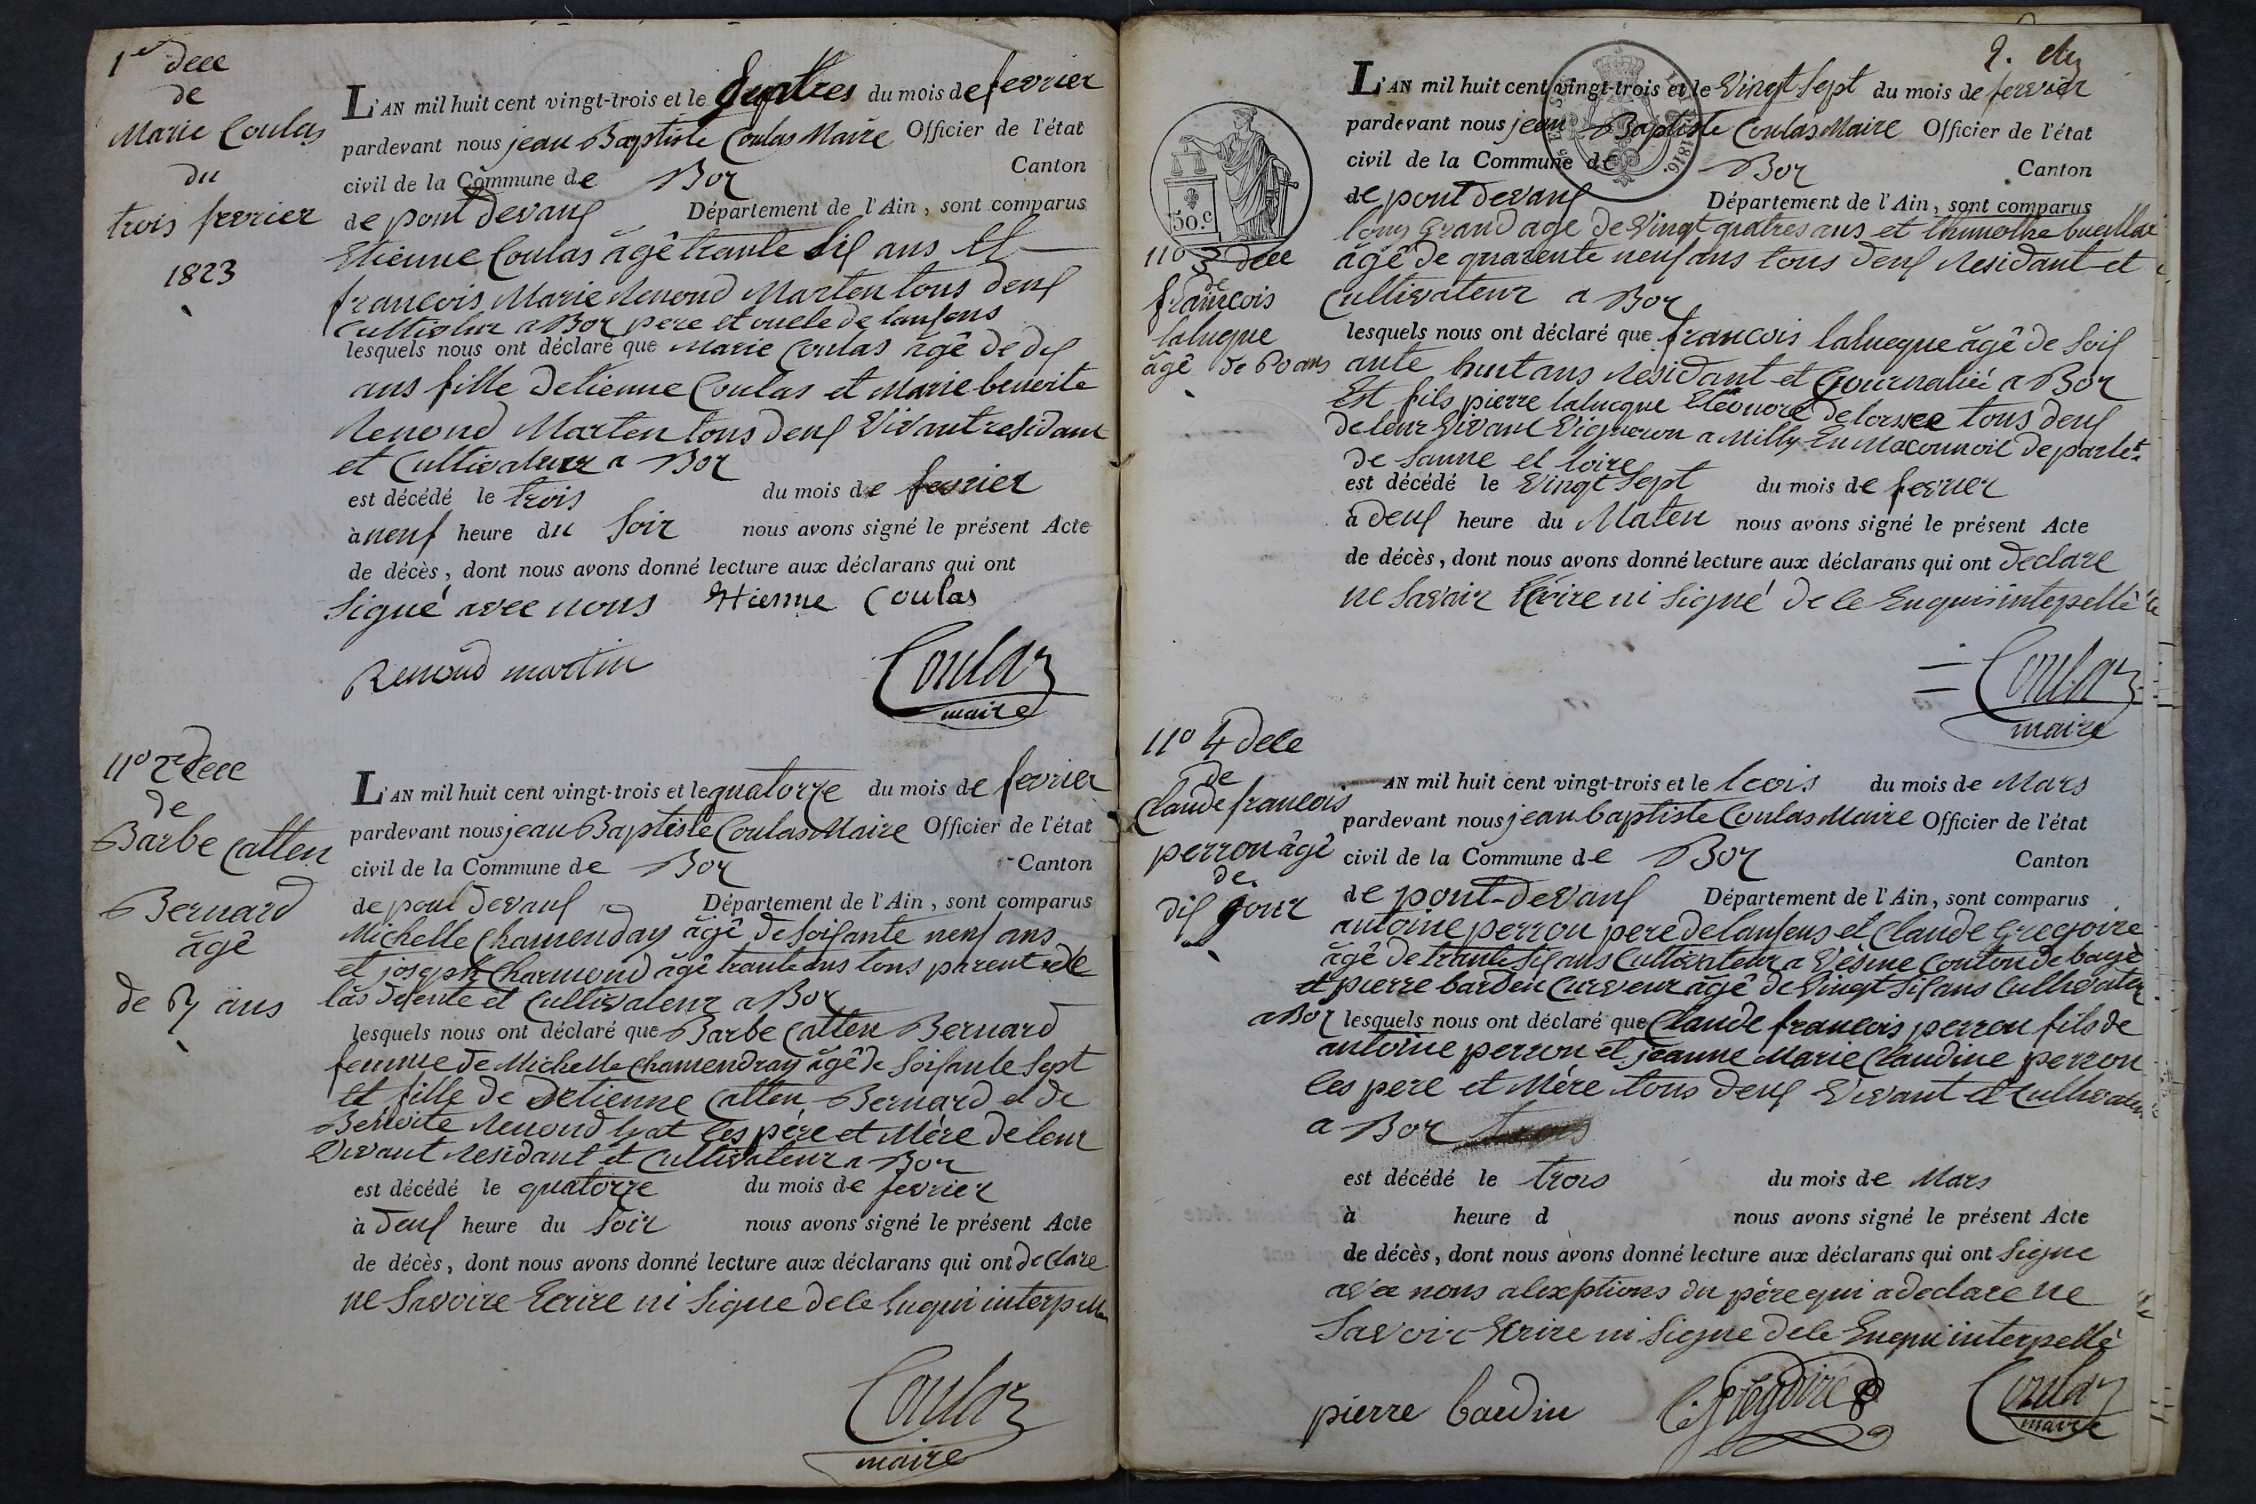 1er dece
de
Marie Coulas
du
trois fevrier
1823
L'AN mil huit cent vingt-trois et le quatres du mois de fevrier
pardevant nous jean Baptiste Coulas Maire Officier de l'état
civil de la Commune de Boz Canton
de pont devaux Département de l'Ain, sont comparus
Etienne Coulas âgê trante six ans Et
francois Marie Renond Marten tous deux
Cultivateur a Boz pere et oncle de lanfens
lesquels nous ont déclaré que Marie Coulas âgê de dix
ans fille detienne Coulas et Marie benoite
Renond Marten tous deux Vivant residant
et Cultivateur a Boz
est décédé le trois du mois de fevrier
à neuf heure du Soir nous avons signé le présent Acte
de décès, dont nous avons donné lecture aux déclarans qui ont
Signé avec nous Etienne Coulas
Renoud martin
Coulaz
maire
n° 2 dece
de
Barbe Catten
Bernard
âgê
de 67 ans
L'AN mil huit cent vingt-trois et le quatorze du mois de fevrier
pardevant nous jean Baptiste Coulas Maire Officier de l'état
civil de la Commune de Boz Canton
de pont devaux Département de l'Ain, sont comparus
Michelle Chamenday âgê de soixante neuf ans
et joseph Charmond âgê trante ans tous parent de
las defente et Cultivateur a Boz
lesquels nous ont déclaré que Barbe Catten Bernard
femme de Michelle Chamendray âgê de Soixante Sept
et fille de Detienne Catten Bernard et de
Benoite Renond les père et Mère de leur
Vivant Residant et Cultivateur a Boz
est décédé le quatorze du mois de fevrier
à deux heure du Soir nous avons signé le présent Acte
de décès, dont nous avons donné lecture aux déclarans qui ont declare
ne Savoire Ecrire ni Signe de le Enquis interpelle
Coulaz
maire
2.
50.c
1816.
n° 3 dece
de
francois
laluque
âgê de 60 ans
L'AN mil huit cent vingt-trois et le Vingt Sept du mois de fevrier
pardevant nous jean Baptiste Coulas Maire Officier de l'état
civil de la Commune de Boz Canton
de pont devaux Département de l'Ain, sont comparus
Grand age de Vingt quatres ans et
âgê de quarente neuf ans tous deux Residant et
Cultivateur a Boz
lesquels nous ont déclaré que francois laluque âgê de Soix
ante huit ans Residant et Gournalié a Boz
Est fils pierre laluque Eléonore tous deux
de leur Vivant Vigneron a Milly En Maconnoit departet.
de Sanne et loire
est décédé le Vingt Sept du mois de fevrier
à deux heure du Maten nous avons signé le présent Acte
de décès, dont nous avons donné lecture aux déclarans qui ont declare
ne Savoir Ecrire ni Signé de le Enquis intepellê
Coulaz
maire
n° 4 dece
de
Claude francois
perron âgê
de
dix jour
AN mil huit cent vingt-trois et le trois du mois de Mars
pardevant nous jean baptiste Coulas Maire Officier de l'état
civil de la Commune de Boz Canton
de pont-devaux Département de l'Ain, sont comparus
antoine perron pere de lanfens et Claude Gregoire
âgê de trante six ans Cultivateur a Vésine Conton de bagé
et pierre bardin Cureveur âgê de Vingt Six ans Cultivateur
a Boz lesquels nous ont déclaré que Claude francois perron fils de
antoine perron et jeanne Marie Claudine perron
les pere et Mère tous deux Vivant et Cultivateur
a Boz
est décédé le trois du mois de Mars
à heure d nous avons signé le présent Acte
de décès, dont nous avons donné lecture aux déclarans qui ont Signe
avec nous alexptions du père qui a declare ne
Savoir Ecrire ni Signe de le Enquis interpellê
pierre bardin
C. Gregoire
Coulaz
maire